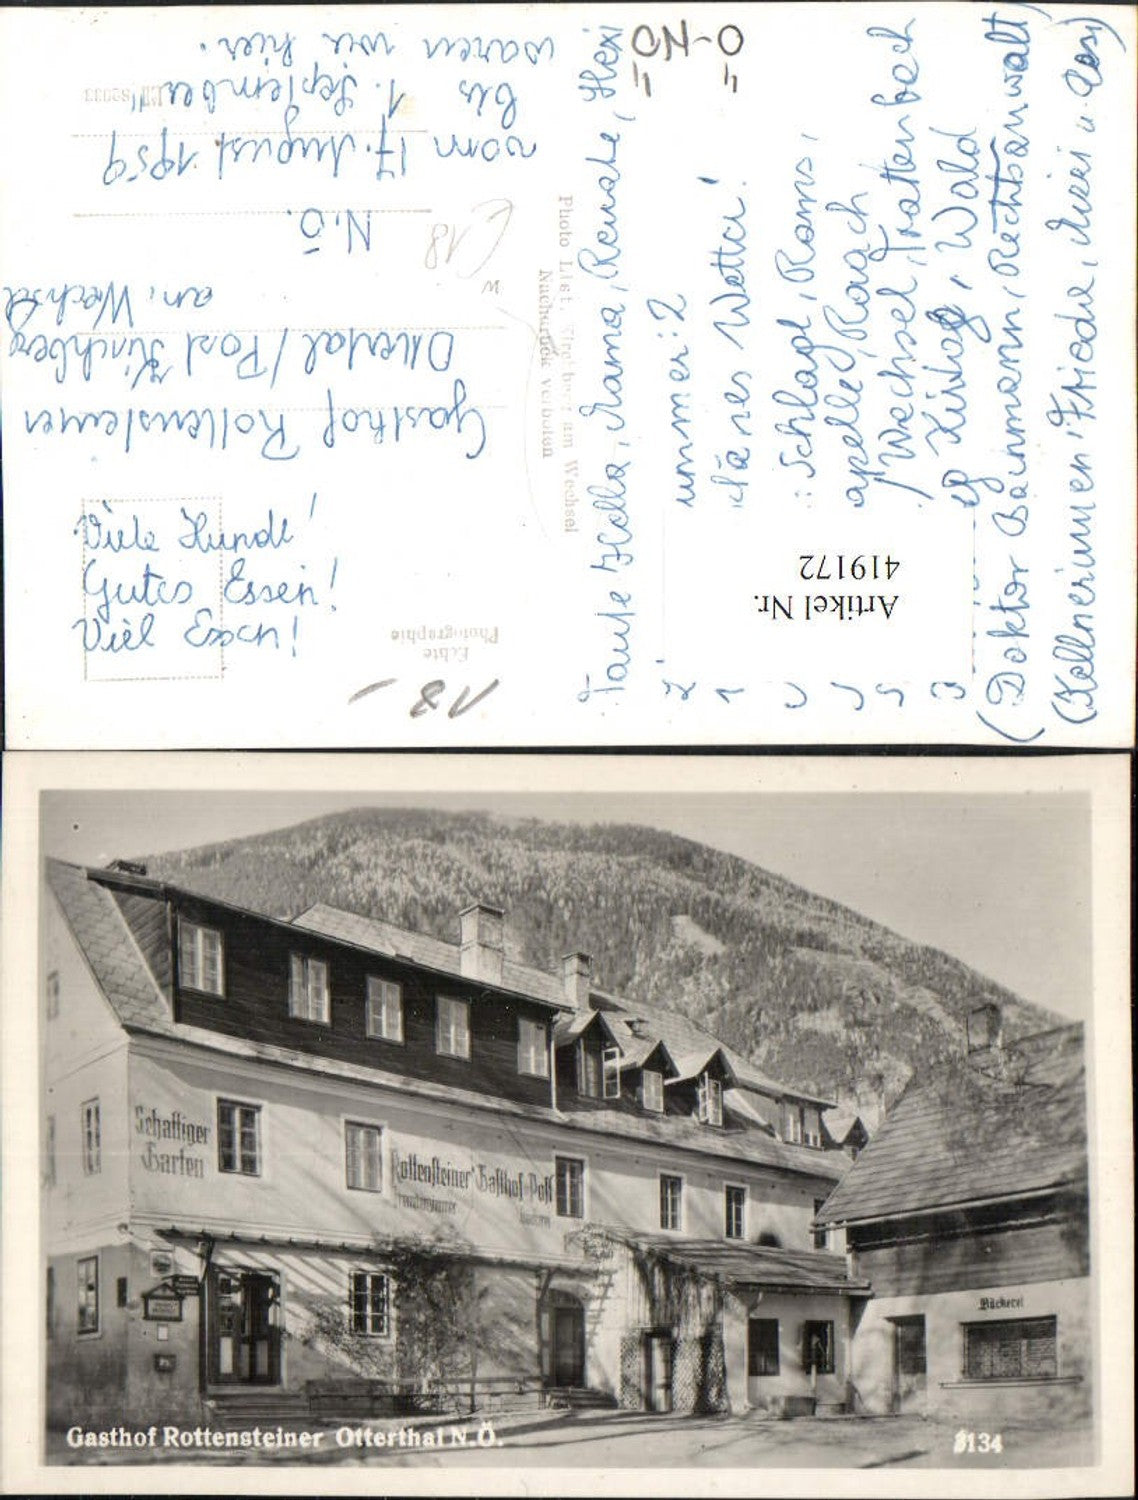 Gasthof Rottensteiner
Ottertal / Post Kirchberg
am Wechsel
N.Ö.
vom 17. August 1959
bis 1. September
waren wir hier.
Viele Hunde!
Gutes Essen!
Viel Essen!
Tante Hella, Mama, Renate, Hexi
ummer: 2
nes Wetter!
Schlagl, Rams,
apelle, Raach
Wechsel, Trattenbach
Kirtag, Wald
(Doktor Bainmann, Rechtsanwalt)
(Kellnerinnen: Frieda, Mizzi u. Rosi)
Ö-NÖ
18.-
Echte
Photographie
Photo List, Kirchberg am Wechsel
Nachdruck verboten
Artikel Nr.
419172
Schattiger
Garten
Rottensteiner's Gasthof-Post
Fremdenzimmer
Bäckerei
Gasthof Rottensteiner Otterthal N.Ö.
3134